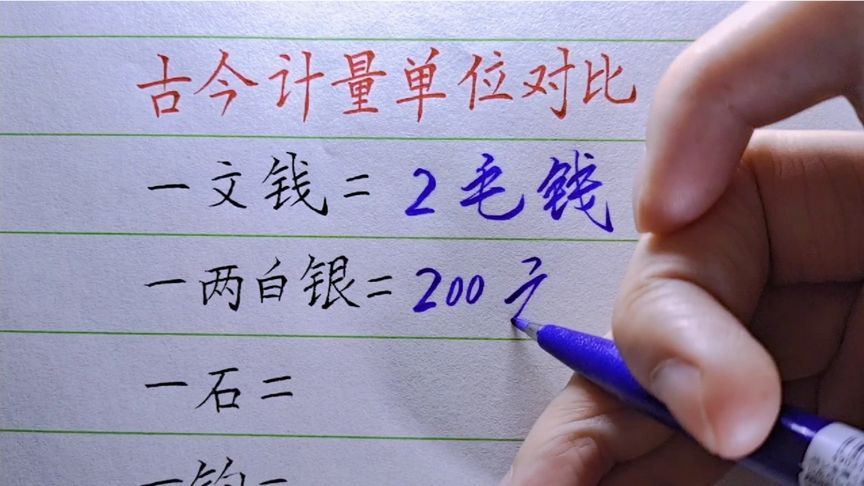 古今计量单位对比
一文钱=2毛钱
一两白银=200
一石=
一钧=